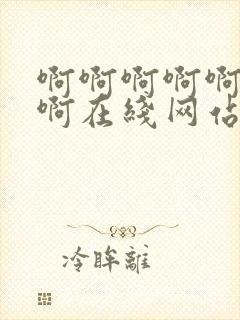 啊啊啊啊啊
啊在綫网佔
冷眸離